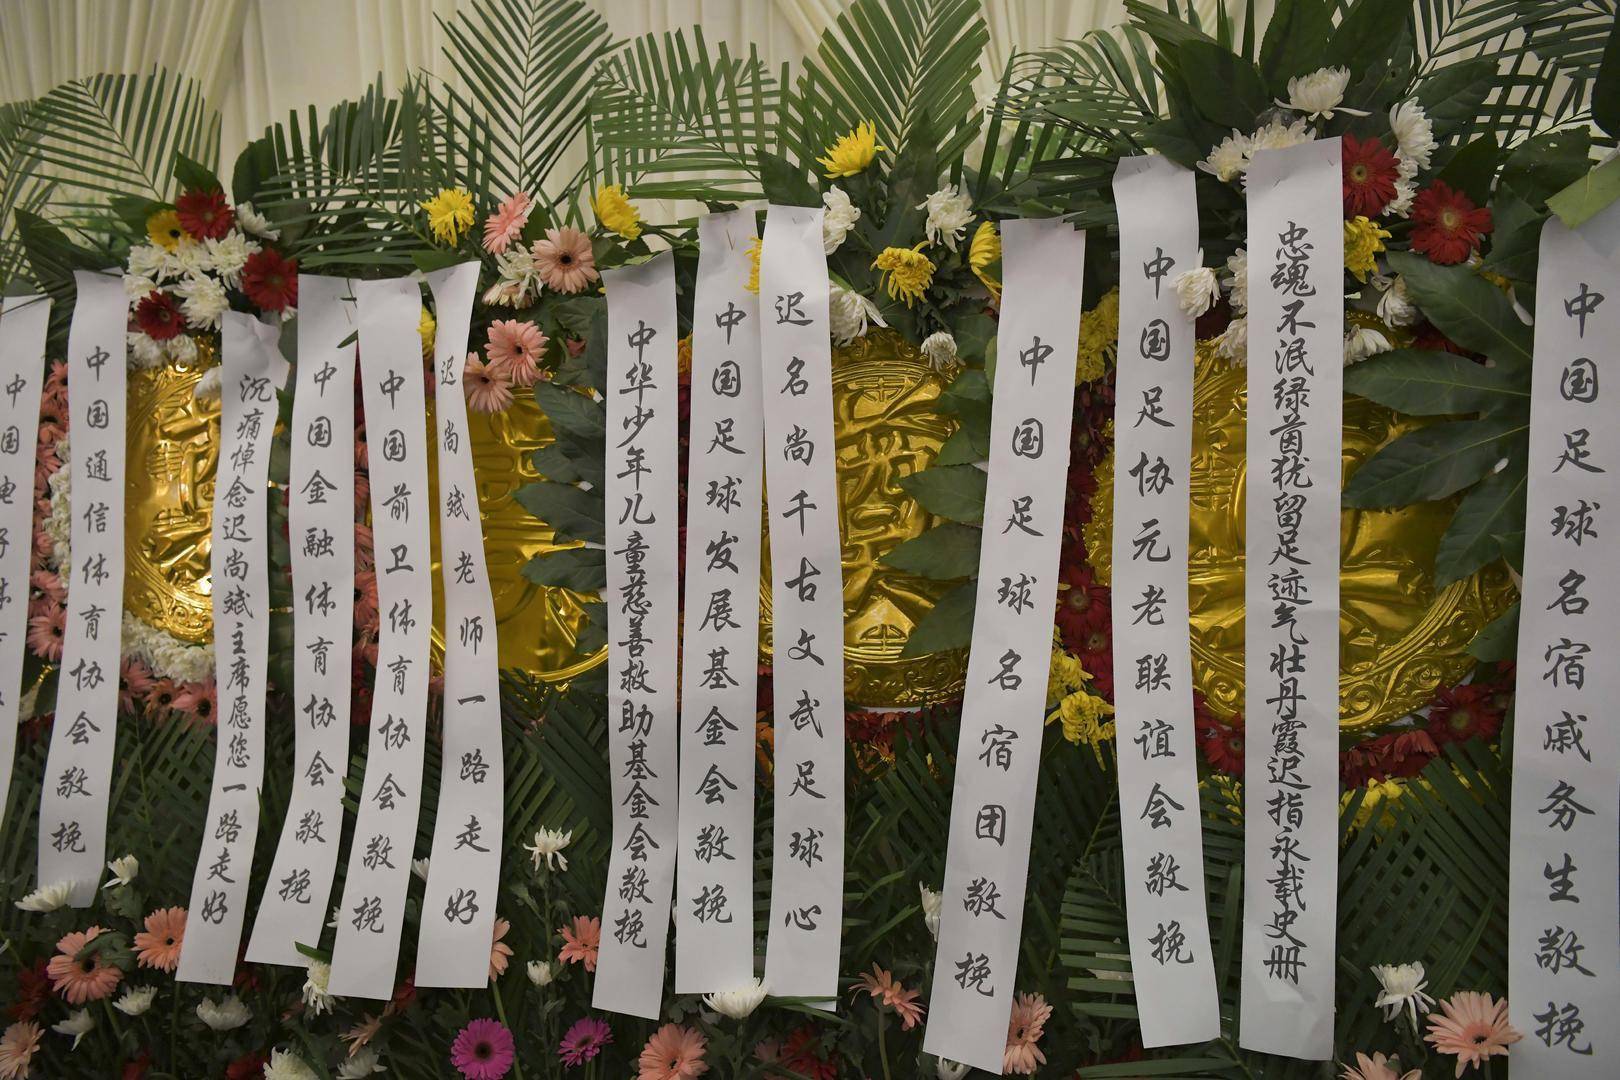 中国电子体
中国通信体育协会敬挽
沉痛悼念迟尚斌主席愿您一路走好
中国金融体育协会敬挽
中国前卫体育协会敬挽
迟尚斌老师一路走好
中华少年儿童慈善救助基金会敬挽
中国足球发展基金会敬挽
迟名尚千古文武足球心
中国足球名宿团敬挽
中国足协元老联谊会敬挽
忠魂不泯绿茵犹留足迹气壮丹霞迟指永载史册
中国足球名宿戚务生敬挽